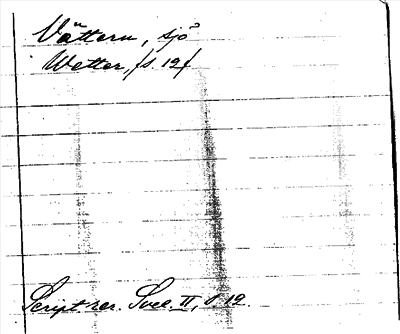 Vättern, sjö
Wetter, /s. 12/
Script. rer. Svec. II, s 12.